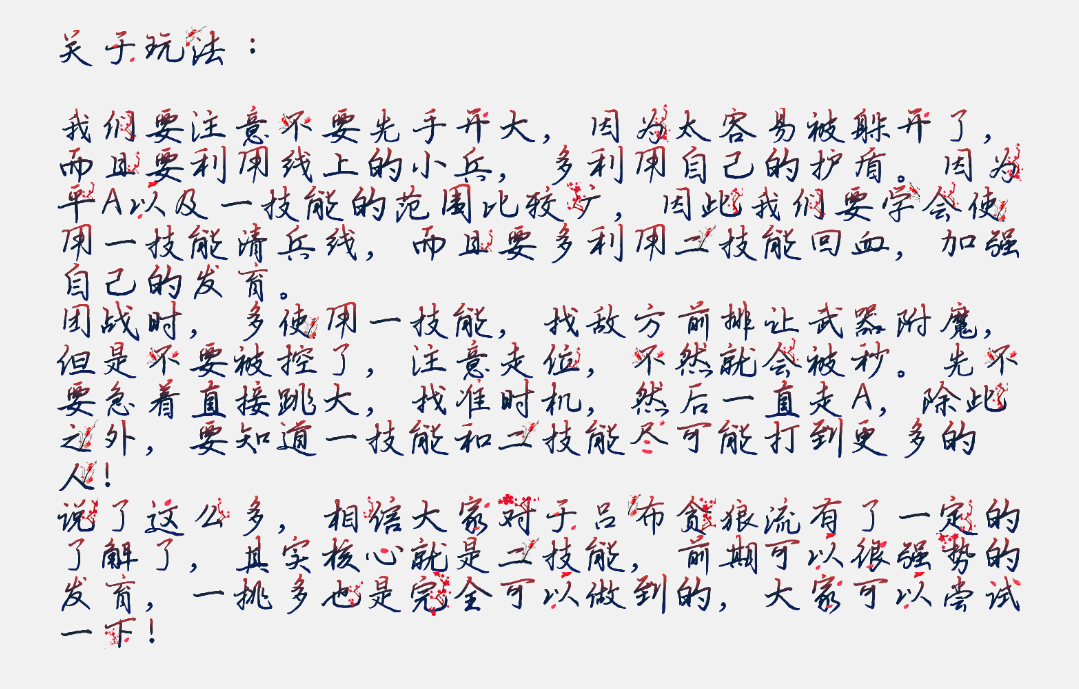 关于玩法：
我们要注意不要先手开大，因为太容易被躲开了，
而且要利用线上的小兵，多利用自己的护盾。因为
平A以及一技能的范围比较广，因此我们要学会使
用一技能清兵线，而且要多利用二技能回血，加强
自己的发育。
团战时，多使用一技能，找敌方前排让武器附魔，
但是不要被控了，注意走位，不然就会被秒。先不
要急着直接跳大，找准时机，然后一直走A，除此
之外，要知道一技能和二技能尽可能打到更多的
人！
说了这么多，相信大家对于吕布贪狼流有了一定的
了解了，其实核心就是二技能，前期可以很强势的
发育，一挑多也是完全可以做到的，大家可以尝试
一下！